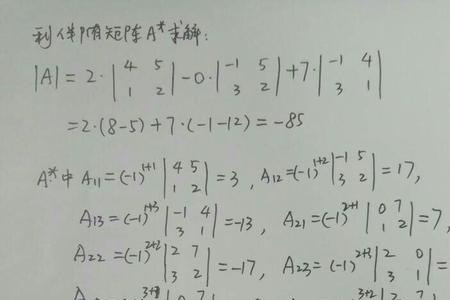 利伴随矩阵A*求解:
|A| = 2·|4 5; 1 2| - 0·|-1 5; 3 2| + 7·|-1 4; 3 1|
= 2·(8-5) + 7·(-1-12) = -85
A*中 A11 = (-1)^1+1 |4 5; 1 2| = 3 , A12 = (-1)^1+2 |-1 5; 3 2| = 17,
A13 = (-1)^1+3 |-1 4; 3 1| = -13, A21 = (-1)^2+1 |0 7; 1 2| = 7,
A22 = (-1)^2+2 |2 7; 3 2| = -17, A23 = (-1)^2+3 |2 0; 3 1| =